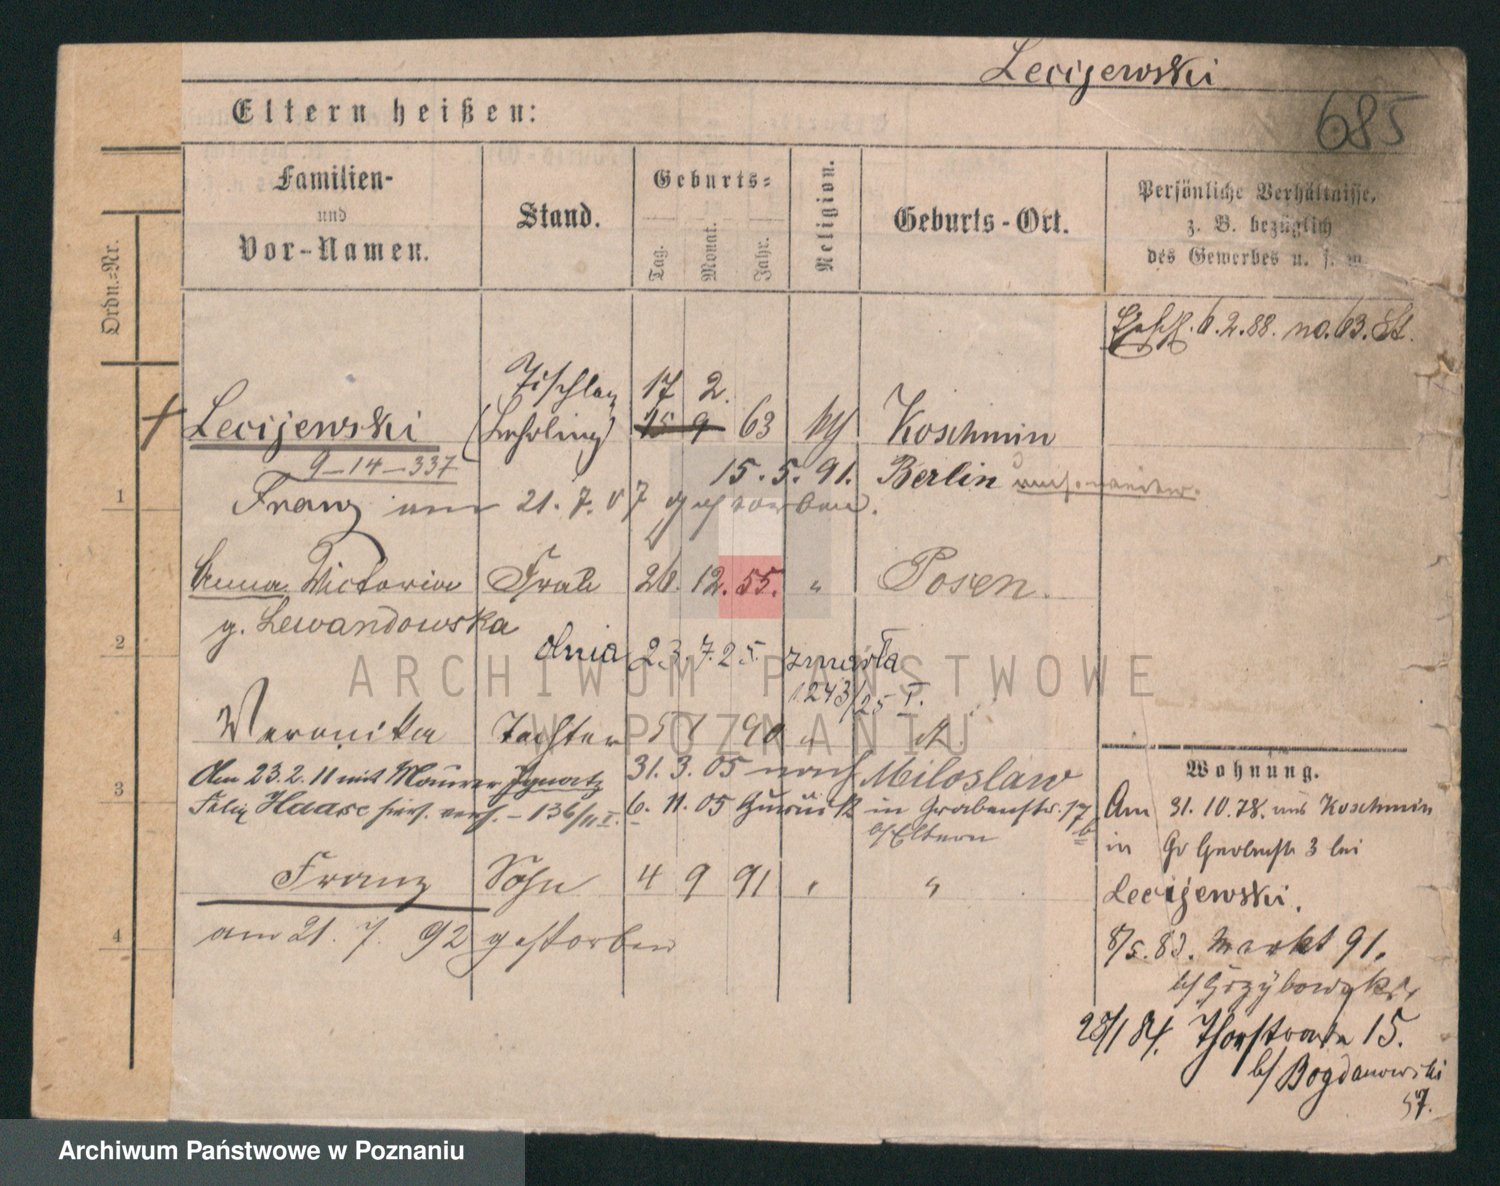 Lecijewski
685
Eltern heißen:
Ordn.=Nr.
Familien-
und
Vor-Namen.
Stand.
Geburts=
Tag.
Monat.
Jahr.
Religion.
Geburts-Ort.
Persönliche Verhältnisse,
z. B. bezüglich
des Gewerbes u. s. w.
6.2.88. no. 63. St.
Tischler 17 2.
Lecijewski (Lehrling) 15 9 63 kth Koschmin
9-14-337 15.5.91. Berlin
1
Franz am 21.7.07 gestorben.
Anna Victoria Frau 26. 12. 55. " Posen.
g. Lewandowska
2
dnia 23.7.25. zmarła
1243/25 I.
Veronika Tochter 5 1 90 "
31.3.05 nach Miloslaw
3
Am 23.2.11 mit Maurer Ignatz
Felix Haase hier. verh. - 136/11 I.
6. 11. 05 zurück in Grabenstr. 17
b/Eltern
Franz Sohn 4 9 91 " "
4
am 21. 7. 92 gestorben
Wohnung.
Am 31.10.78. aus Koschmin
in Gr Gerberstr 3 bei
Lecijewski.
8/5.83. Markt 91.
b/Grzybowski
28/1 84. Thorstraße 15.
b/Bogdanowski
57.
ARCHIWUM PAŃSTWOWE
W POZNANIU
Archiwum Państwowe w Poznaniu